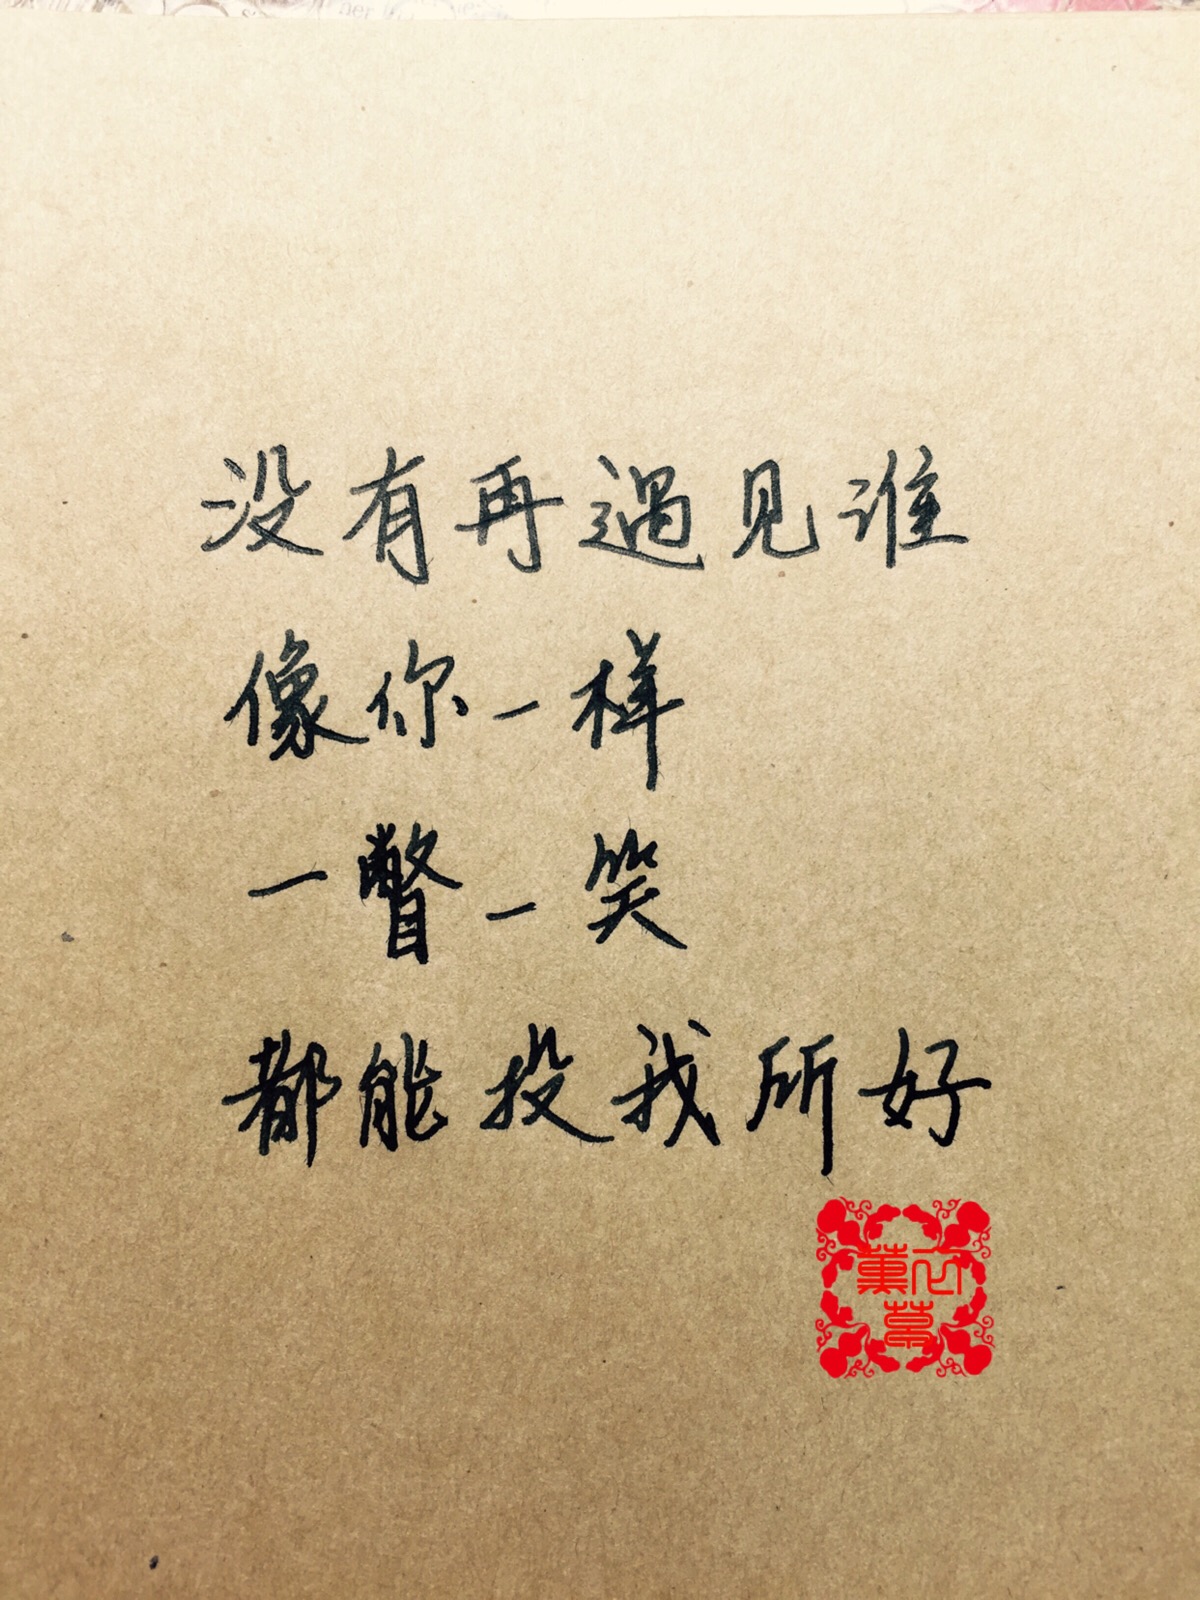 没有再遇见谁
像你一样
一瞥一笑
都能投我所好
薰衣草